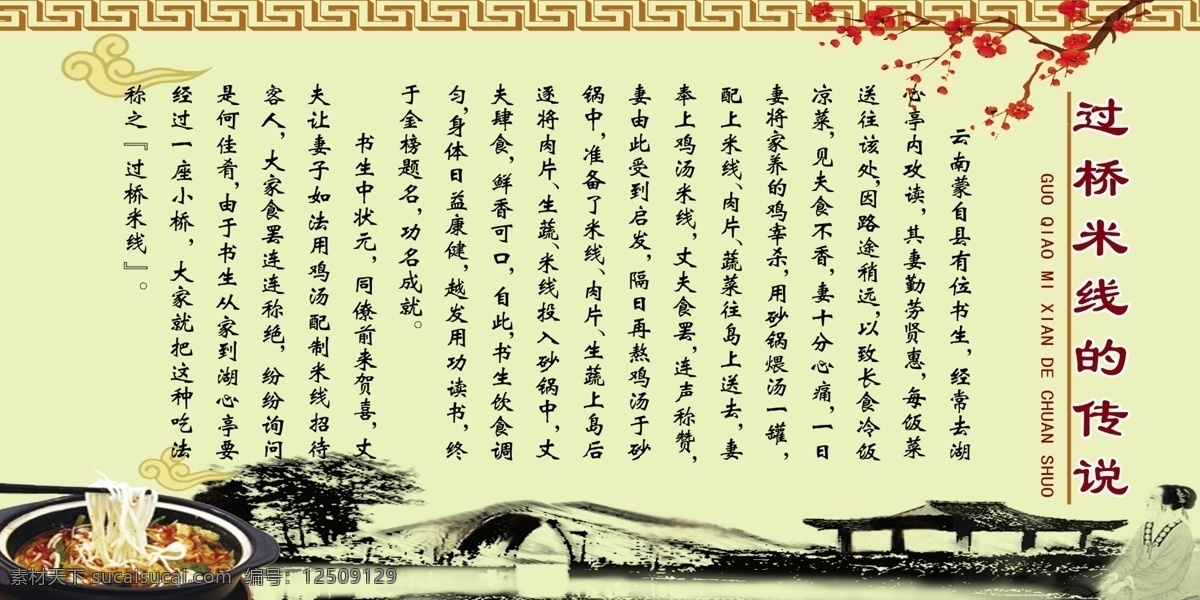 过桥米线的传说
GUO QIAO MI XIAN DE CHUAN SHUO
云南蒙自县有位书生，经常去湖
心亭内攻读，其妻勤劳贤惠，每饭菜
送往该处，因路途稍远，以致长食冷饭
凉菜，见夫食不香，妻十分心痛，一日
妻将家养的鸡宰杀，用砂锅煨汤一罐，
配上米线、肉片、蔬菜往岛上送去，妻
奉上鸡汤米线，丈夫食罢，连声称赞，
妻由此受到启发，隔日再熬鸡汤于砂
锅中，准备了米线、肉片、生蔬上岛后
逐将肉片、生蔬、米线投入砂锅中，丈
夫肆食，鲜香可口，自此，书生饮食调
匀，身体日益康健，越发用功读书，终
于金榜题名，功名成就。
书生中状元，同僚前来贺喜，丈
夫让妻子如法用鸡汤配制米线招待
客人，大家食罢连连称绝，纷纷询问
是何佳肴，由于书生从家到湖心亭要
经过一座小桥，大家就把这种吃法
称之『过桥米线』。
素材天下 sucaisucai.com 编号：12509129